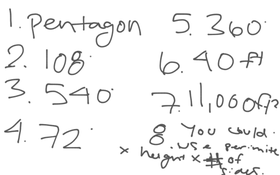 1. pentagon
2. 108°
3. 540°
4. 72°
5. 360°
6. 40 ft
7. 11,000 ft²
8. You could
use perimite
x height x # of
sides.